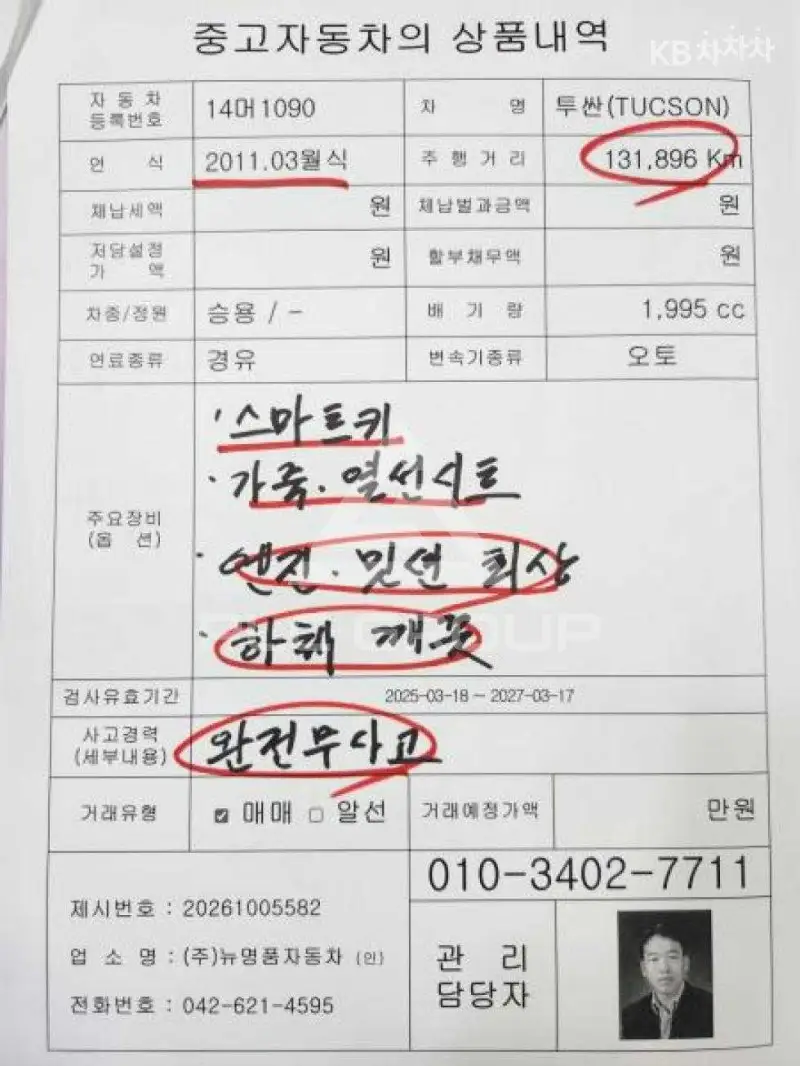 중고자동차의 상품내역
KB차차차
자 동 차 등록번호 14머1090 차 명 투싼(TUCSON)
연 식 2011.03월식 주 행 거 리 131,896 Km
체납세액 원 체납벌과금액 원
저당설정 가 액 원 할부채무액 원
차종/정원 승용 / - 배 기 량 1,995 cc
연료종류 경유 변속기종류 오토
주요장비 (옵 션)
· 스마트키
· 가죽·열선시트
· 엔진·밋션 최상
· 하체 깨끗
검사유효기간 2025-03-18 ~ 2027-03-17
사고경력 (세부내용) 완전무사고
거래유형 ☑ 매매 □ 알선 거래예정가액 만원
010-3402-7711
제시번호 : 20261005582
업 소 명 : (주)뉴명품자동차 (인)
전화번호 : 042-621-4595
관 리
담당자